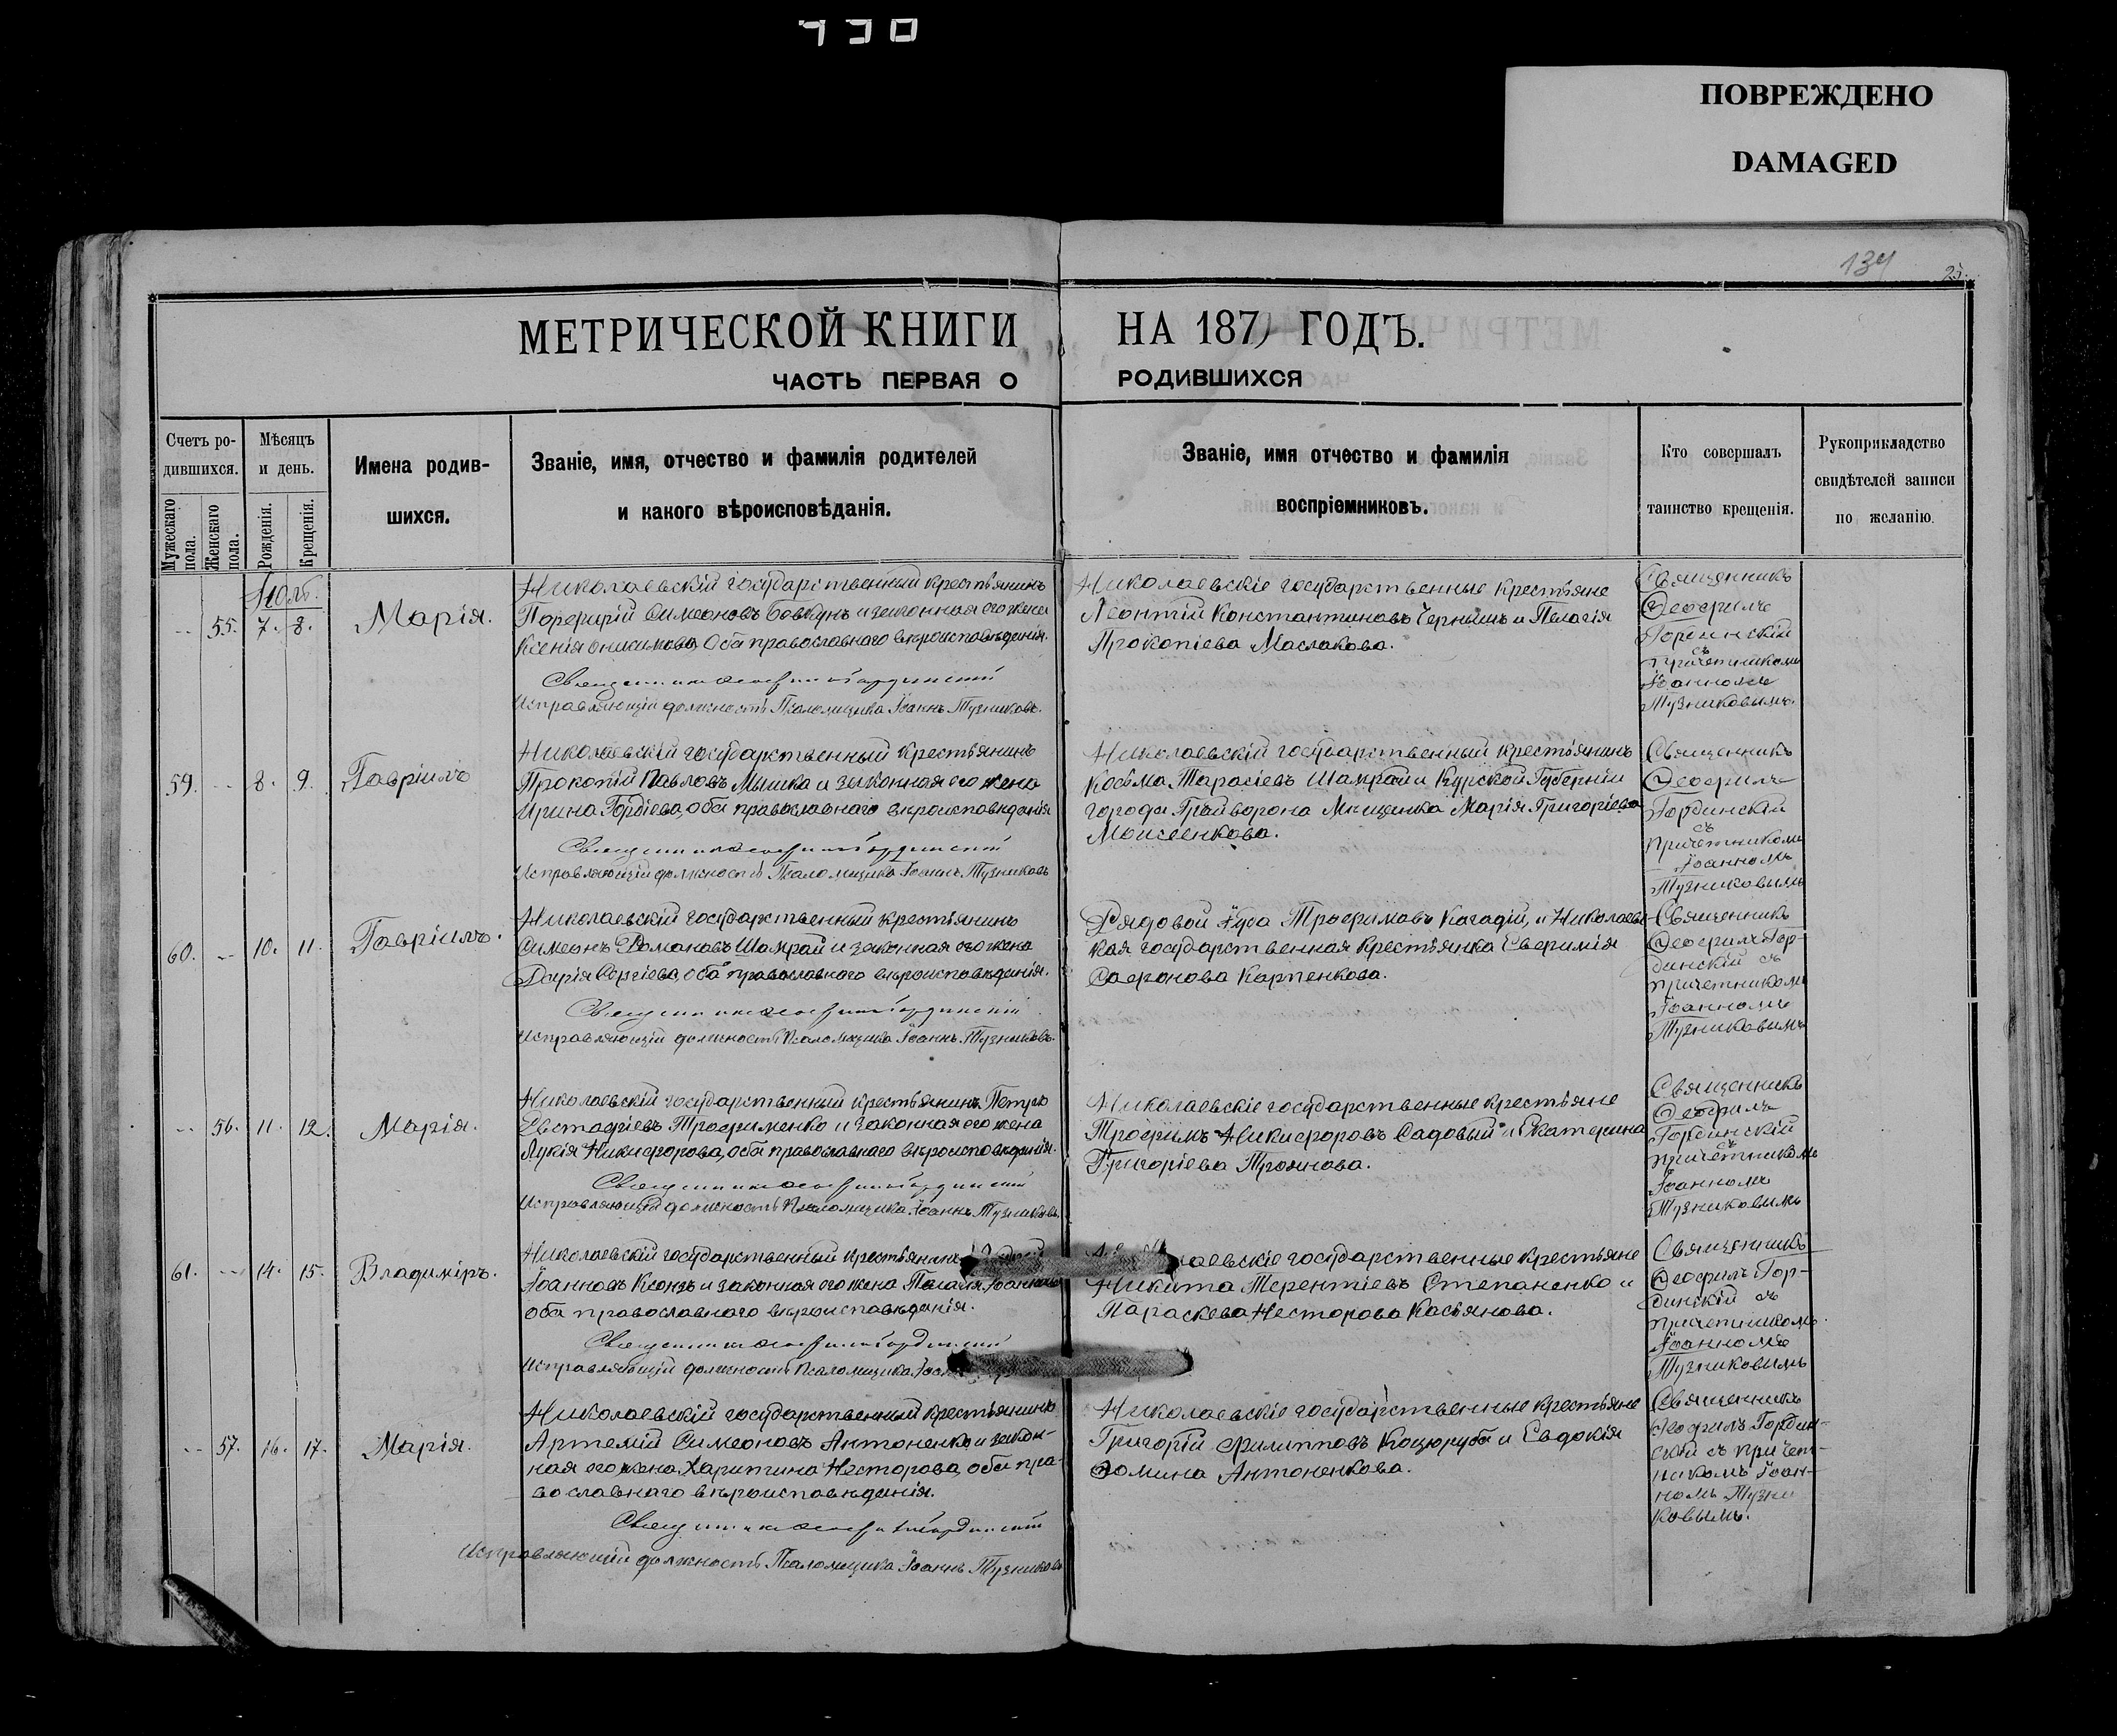 ПОВРЕЖДЕНО
DAMAGED
134
25.
МЕТРИЧЕСКОЙ КНИГИ НА 187 ГОДЪ.
ЧАСТЬ ПЕРВАЯ О РОДИВШИХСЯ
Счетъ ро-
дившихся.
Мужескаго
пола.
Женскаго
пола.
Мѣсяцъ
и день.
Рожденія.
Крещенія.
Имена родив-
шихся.
Званіе, имя, отчество и фамилія родителей
и какого вѣроисповѣданія.
Званіе, имя отчество и фамилія
воспріемниковъ.
Кто совершалъ
таинство крещенія.
Рукоприкладство
свидѣтелей записи
по желанію.
Іюль.
55. 7. 8.
Марія.
Николаевскій государственный крестьянинъ
Порфирій Симеоновъ Бовкунъ и законная его жена
Ксенія Онисимова, оба православнаго вѣроисповѣданія.
Священникъ Ѳеофилъ Гординскій
Исправляющій должность Псаломщика Іоаннъ Тузниковъ.
Николаевскіе государственные крестьяне
Леонтій Константиновъ Чернышъ и Пелагія
Прокопіева Маслакова.
Священникъ
Ѳеофилъ
Гординскій
съ
причетникомъ
Іоанномъ
Тузниковымъ.
59. 8. 9.
Гавріилъ
Николаевскій государственный крестьянинъ
Прокопій Павловъ Мышка и законная его жена
Ирина Гордіева, оба православнаго вѣроисповѣданія
Священникъ Ѳеофилъ Гординскій
Исправляющій должность Псаломщика Іоаннъ Тузниковъ
Николаевскій государственный крестьянинъ
Косьма Тарасіевъ Шамрай и Курской Губерніи
города Грайворона Мѣщанка Марія Григоріева
Моисеенкова.
Священникъ
Ѳеофилъ
Гординскій
съ
причетникомъ
Іоанномъ
Тузниковымъ
60. 10. 11.
Гавріилъ.
Николаевскій государственный крестьянинъ
Симеонъ Романовъ Шамрай и законная его жена
Дарія Сергіева, оба православнаго вѣроисповѣданія.
Священникъ Ѳеофилъ Гординскій
Исправляющій должность Псаломщика Іоаннъ Тузниковъ.
Рядовой Іуда Трофимовъ и Николаевс-
кая государственная крестьянка Евфимія
Сафронова Карпенкова.
Священникъ
Ѳеофилъ Гор-
динскій съ
причетникомъ
Іоанномъ
Тузниковымъ
56. 11. 12.
Марія.
Николаевскій государственный крестьянинъ Петръ
Евстафіевъ Трофименко и законная его жена
Лукія Никифорова, оба православнаго вѣроисповѣданія.
Священникъ Ѳеофилъ Гординскій
Исправляющій должность Псаломщика Іоаннъ Тузниковъ.
Николаевскіе государственные крестьяне
Трофимъ Никифоровъ Садовый и Екатерина
Григоріева Троянова.
Священникъ
Ѳеофилъ
Гординскій
съ
причетникомъ
Іоанномъ
Тузниковымъ
61. 14. 15.
Владиміръ.
Николаевскій государственный крестьянинъ
Іоанновъ Ксонзъ и законная его жена Пелагія Іоаннова
оба православнаго вѣроисповѣданія.
Священникъ Ѳеофилъ Гординскій
Исправляющій должность Псаломщика
государственные крестьяне
Никита Терентіевъ Степаненко и
Параскева Несторова Касьянова.
Священникъ
Ѳеофилъ Гор-
динскій съ
причетникомъ
Іоанномъ
Тузниковымъ
57. 16. 17.
Марія.
Николаевскій государственный крестьянинъ
Артемій Симеоновъ Антоненко и закон-
ная его жена Харитина Несторова, оба пра-
вославнаго вѣроисповѣданія.
Священникъ Ѳеофилъ Гординскій
Исправляющій должность Псаломщика Іоаннъ Тузниковъ
Николаевскіе государственные крестьяне
Григорій Филипповъ Коцюруба и Евдокія
Ѳомина Антоненкова.
Священникъ
Ѳеофилъ Гордин-
скій съ причет-
никомъ Іоан-
номъ Тузни
ковымъ.